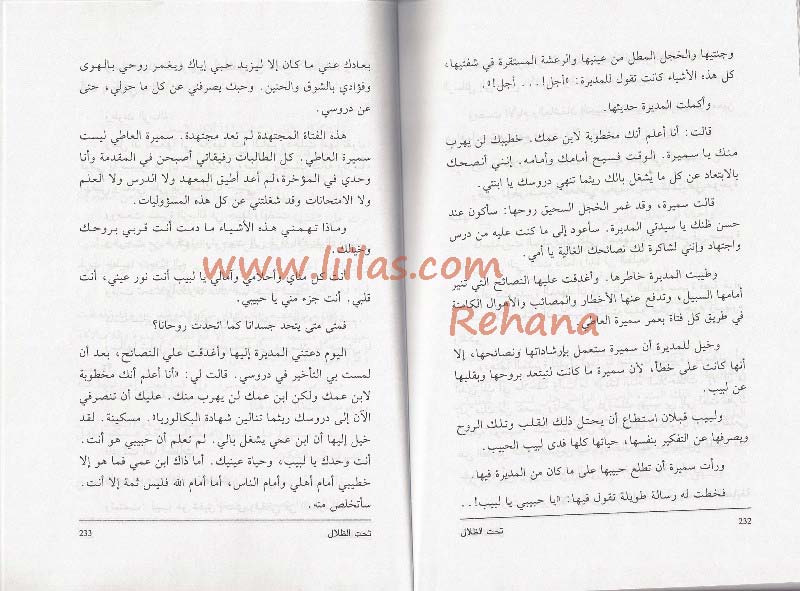 وجنتيها والخجل المطل من عينيها والرعشة المستقرة في شفتيها،
كل هذه الأشياء كانت تقول للمديرة: «أجل!... أجل!».
وأكملت المديرة حديثها.
قالت: أنا أعلم أنك مخطوبة لابن عمك. خطيبك لن يهرب
منك يا سميرة. الوقت فسيح أمامك وأمامه. إنني أنصحك
بالابتعاد عن كل ما يشغل بالك ريثما تنهي دروسك يا ابنتي.
قالت سميرة، وقد غمر الخجل السحيق روحها: سأكون عند
حسن ظنك يا سيدتي المديرة. سأعود إلى ما كنت عليه من درس
واجتهاد وإنني لشاكرة لك نصائحك الغالية يا أمي.
وطيبت المديرة خاطرها. وأغدقت عليها النصائح التي تنير
أمامها السبيل، وتدفع عنها الأخطار والمصائب والأهوال الكامنة
في طريق كل فتاة بعمر سميرة العاطي.
وخيل للمديرة أن سميرة ستعمل بإرشاداتها ونصائحها، إلا
أنها كانت على خطأ، لأن سميرة ما كانت لتبتعد بروحها وبقلبها
عن لبيب.
ولبيب قبلان استطاع أن يحتل ذلك القلب وتلك الروح
ويصرفها عن التفكير بنفسها، حياتها كلها فدى لبيب الحبيب.
ورأت سميرة أن تطلع حبيبها على ما كان من المديرة فيها.
فخطت له رسالة طويلة تقول فيها: «يا حبيبي يا لبيب!..
232
تحت الظلال
بعادك عني ما كان إلا ليزيد حبي إياك ويغمر روحي بالهوى
وفؤادي بالشوق والحنين. وحبك يصرفني عن كل ما حولي، حتى
عن دروسي.
هذه الفتاة المجتهدة لم تعد مجتهدة. سميرة العاطي ليست
سميرة العاطي. كل الطالبات رفيقاتي أصبحن في المقدمة وأنا
وحدي في المؤخرة، لم أعد أطيق المعهد ولا الدرس ولا العلم
ولا الامتحانات وقد شغلتني عن كل هذه المسؤوليات.
وماذا تهمني هذه الأشياء ما دمت أنت قربي بروحك
وخيالك.
أنت كل مناي وأحلامي وأمالي يا لبيب أنت نور عيني، أنت
قلبي. أنت جزء مني يا حبيبي.
فمتى متى يتحد جسدانا كما اتحدت روحانا؟
اليوم دعتني المديرة إليها وأغدقت علي النصائح، بعد أن
لمست بي التأخير في دروسي. قالت لي: «أنا أعلم أنك مخطوبة
لابن عمك ولكن ابن عمك لن يهرب منك. عليك أن تنصرفي
الآن إلى دروسك ريثما تنالين شهادة البكالوريا». مسكينة. لقد
خيل إليها أن ابن عمي يشغل بالي. لم تعلم أن حبيبي هو أنت.
أنت وحدك يا لبيب، وحياة عينيك. أما ذاك ابن عمي فما هو إلا
خطيبي أمام أهلي وأمام الناس، أما أمام الله فليس ثمة إلا أنت.
سأتخلص منه.
تحت الظلال
233
www.liilas.com
Rehana